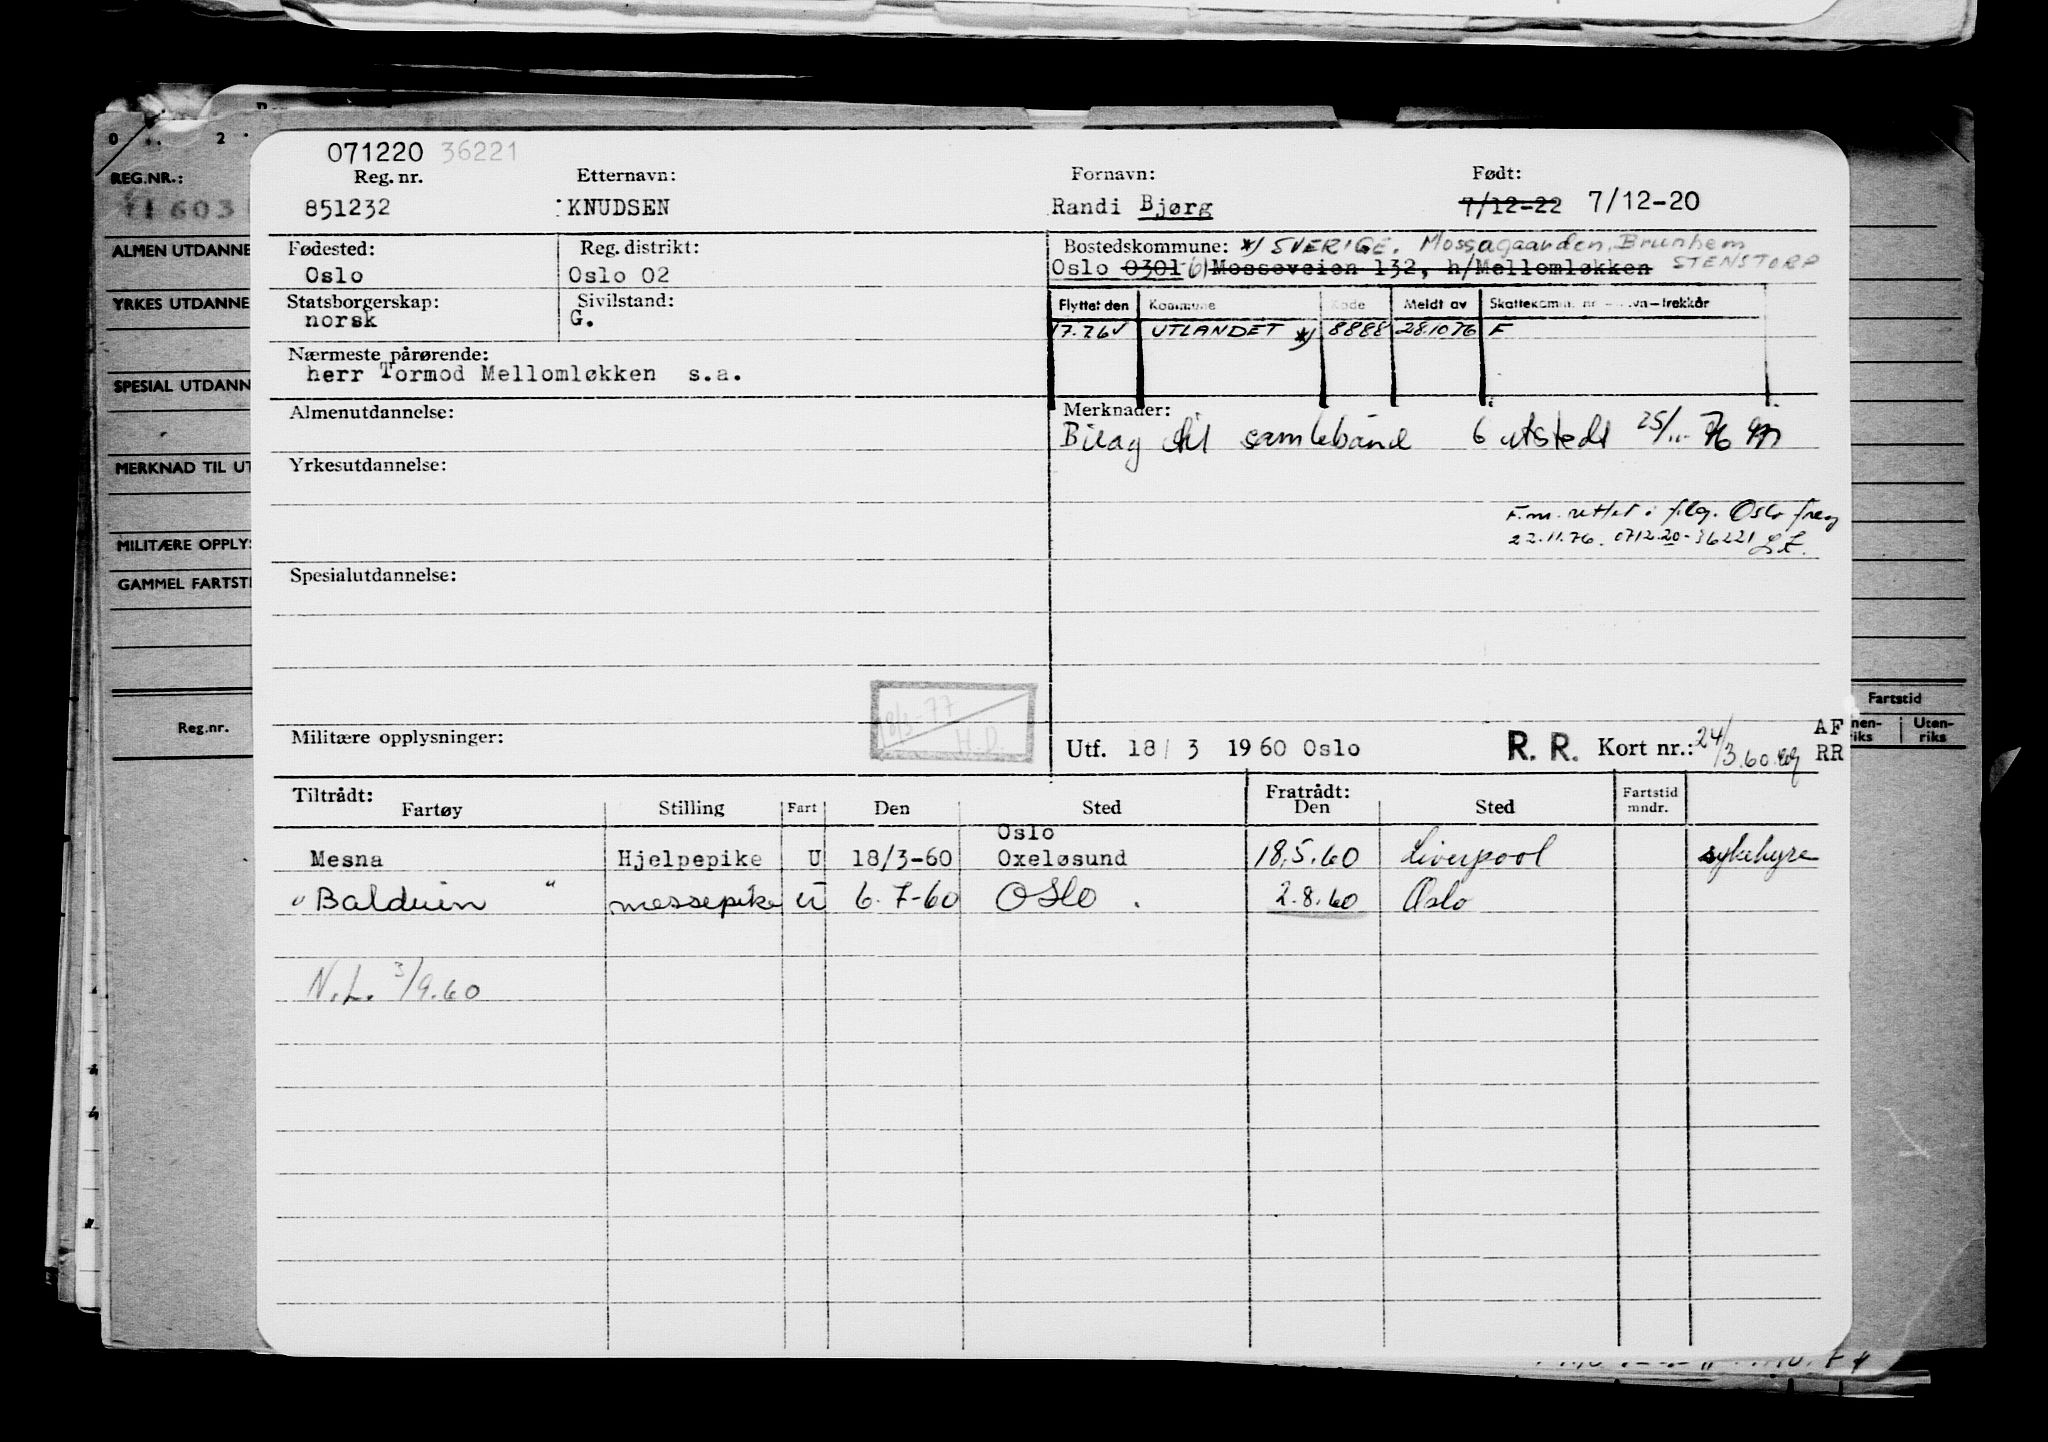 071220 36221
Reg. nr. Etternavn: Fornavn: Født:
851232 KNUDSEN Randi Bjørg 7/12-22 7/12-20
Fødested: Reg. distrikt: Bostedskommune: *) SVERIGE. Mossagaarden, Brunhem
Oslo Oslo 02 Oslo 0301-61 Mosseveien 132, h/Mellomløkken STENSTORP
Statsborgerskap: Sivilstand: Flyttet den Kommune Kode Meldt av
norsk G. 17.76 UTLANDET *) 8888 281076 F
Nærmeste pårørende:
herr Tormod Mellomløkken s.a.
Almenutdannelse: Merknader:
Bilag til samlebånd 6 utstedt 25/11-76
Yrkesutdannelse:
F.nr. rettet i flg. Oslo freg
22.11.76. 071220-36221
Spesialutdannelse:
18/3-77
H.D.
Militære opplysninger: Utf. 18/3 1960 Oslo R. R. Kort nr.: 24/3.60 AF
RR
Tiltrådt: Fratrådt: Fartstid
Fartøy Stilling Fart Den Sted Den Sted mndr.
Oslo
Mesna Hjelpepike U 18/3-60 Oxeløsund 18.5.60 Liverpool sykehyre
"Balduin" messepike U 6.7-60 Oslo. 2.8.60 Oslo
N.L. 3/9.60
0 2
REG.NR.:
11603
ALMEN UTDANNE
YRKES UTDANNE
SPESIAL UTDANN
MERKNAD TIL UT
MILITÆRE OPPLYS
GAMMEL FARTSTI
Reg.nr.
Fartstid
nen-
riks
Uten-
riks